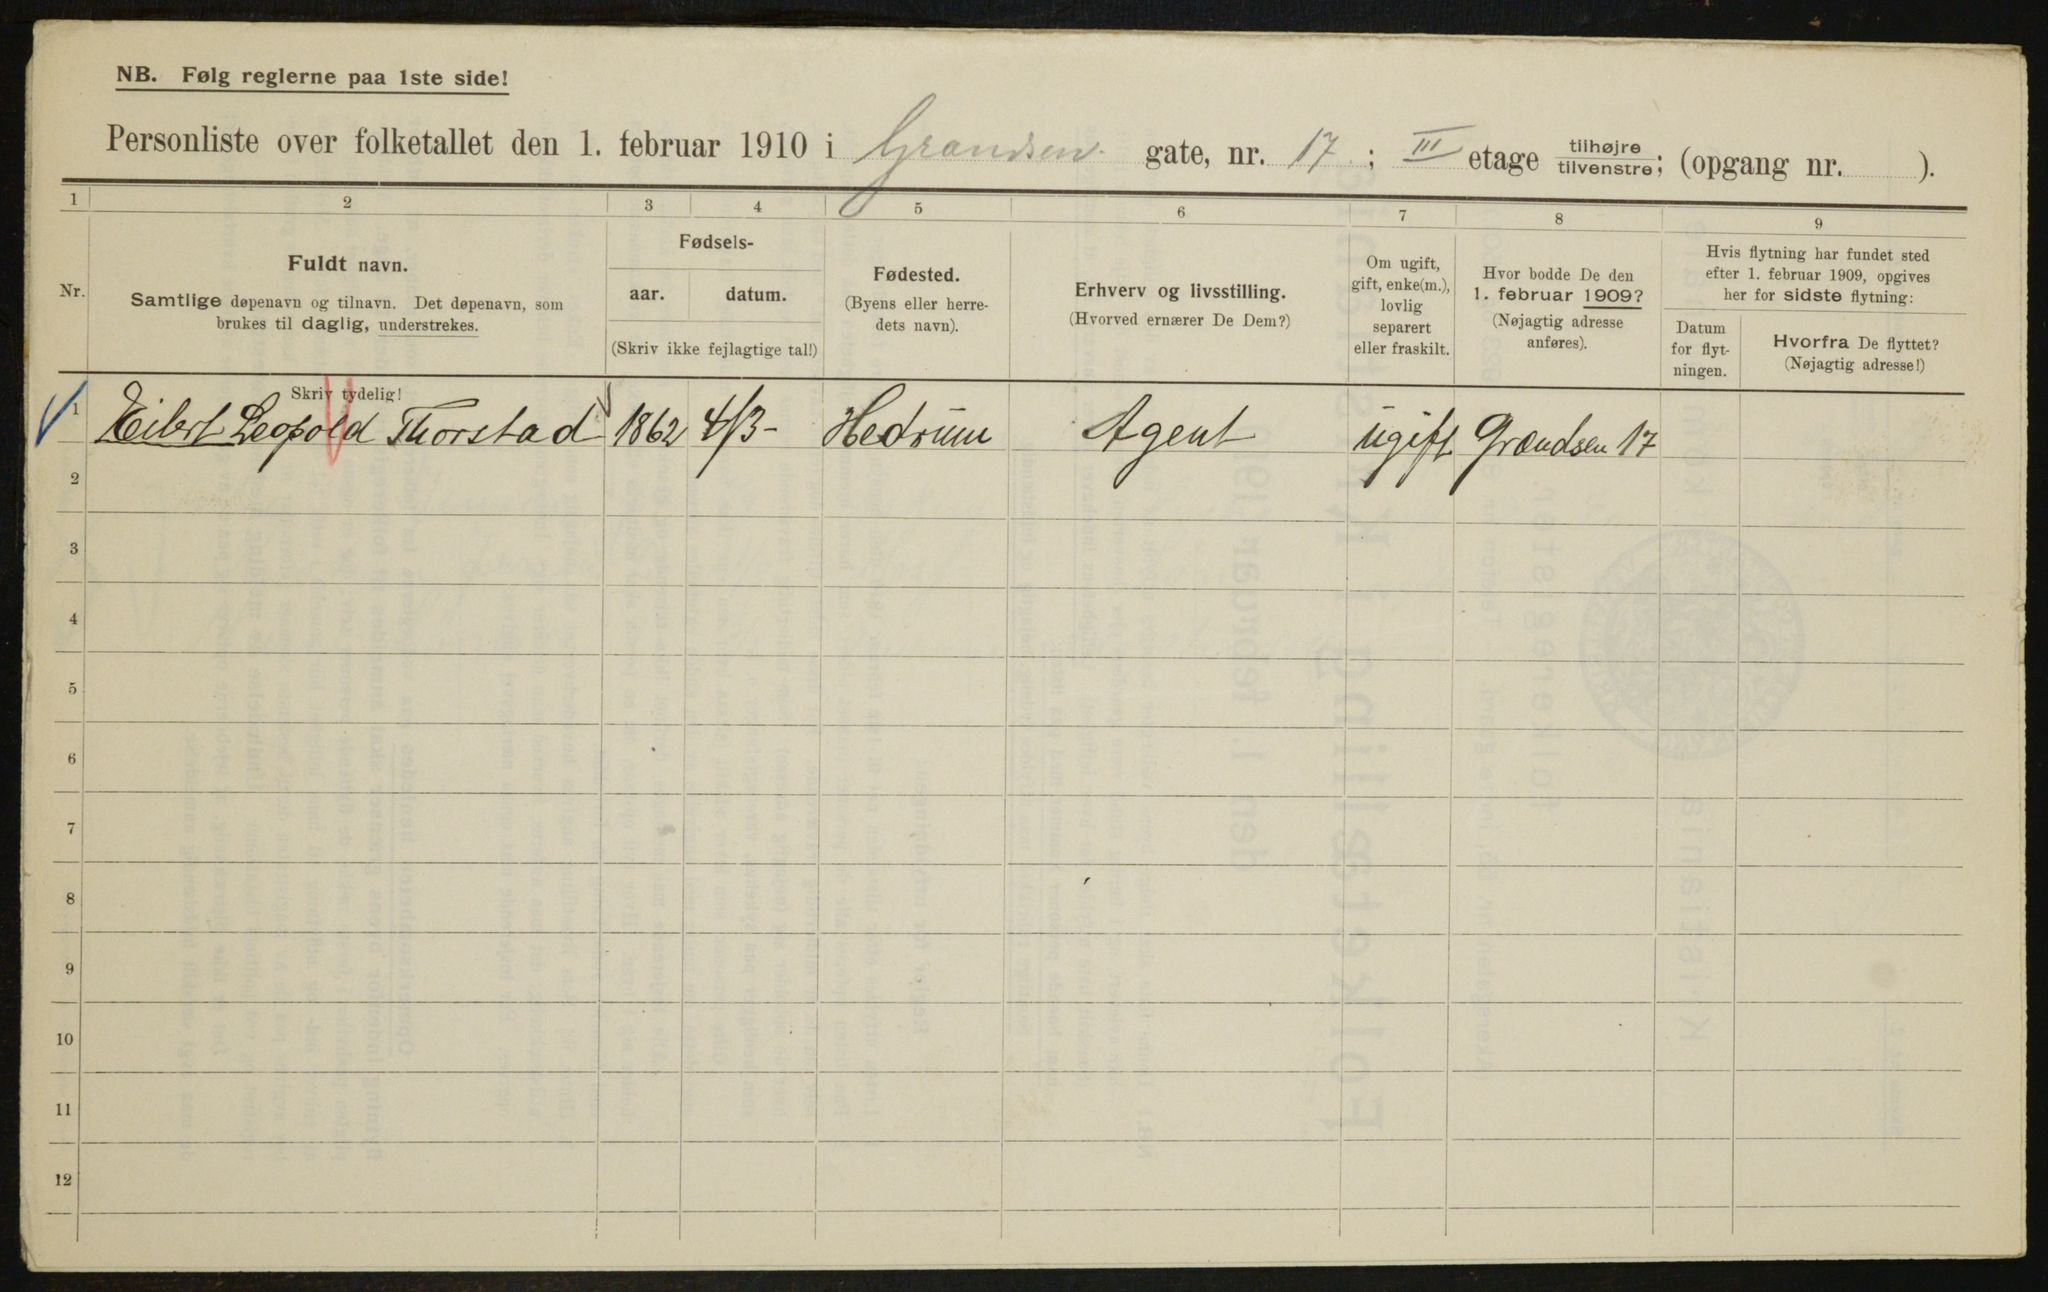 NB. Følg reglerne paa 1ste side!
Personliste over folketallet den 1. februar 1910 i Grændsen gate, nr. 17; III etage tilhøjre/tilvenstre; (opgang nr. ).
1 2 3 4 5 6 7 8 9
Nr.
Fuldt navn.
Samtlige døpenavn og tilnavn. Det døpenavn, som
brukes til daglig, understrekes.
Skriv tydelig!
Fødsels-
aar. datum.
(Skriv ikke fejlagtige tal!)
Fødested.
(Byens eller herre-
dets navn).
Erhverv og livsstilling.
(Hvorved ernærer De Dem?)
Om ugift,
gift, enke(m.),
lovlig
separert
eller fraskilt.
Hvor bodde De den
1. februar 1909?
(Nøjagtig adresse
anføres).
Hvis flytning har fundet sted
efter 1. februar 1909, opgives
her for sidste flytning:
Datum
for flyt-
ningen.
Hvorfra De flyttet?
(Nøjagtig adresse!)
1 Eilert Leopold Thorstad 1862 4/3- Hedrum Agent ugift Grændsen 17
2
3
4
5
6
7
8
9
10
11
12